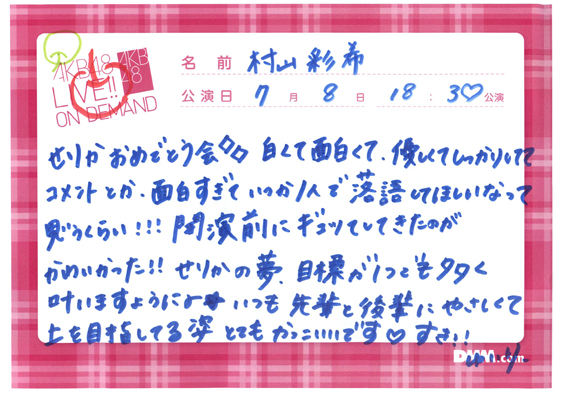 AKB48
LIVE!!
ON DEMAND
AKB
48
名前 村山彩希
公演日 7月8日 18:30公演
せりかおめでとう会 白くて面白くて、優しくてしっかりしてて
コメントとか、面白すぎていつか1人で落語してほしいなって
思うくらい!!! 開演前にギュッてしてきたのが
かわいかった!! せりかの夢、目標が1つでも多く
叶いますように いつも先輩と後輩にやさしくて
上を目指してる姿 とてもかっこいいです♡ すき!!
DMM.com